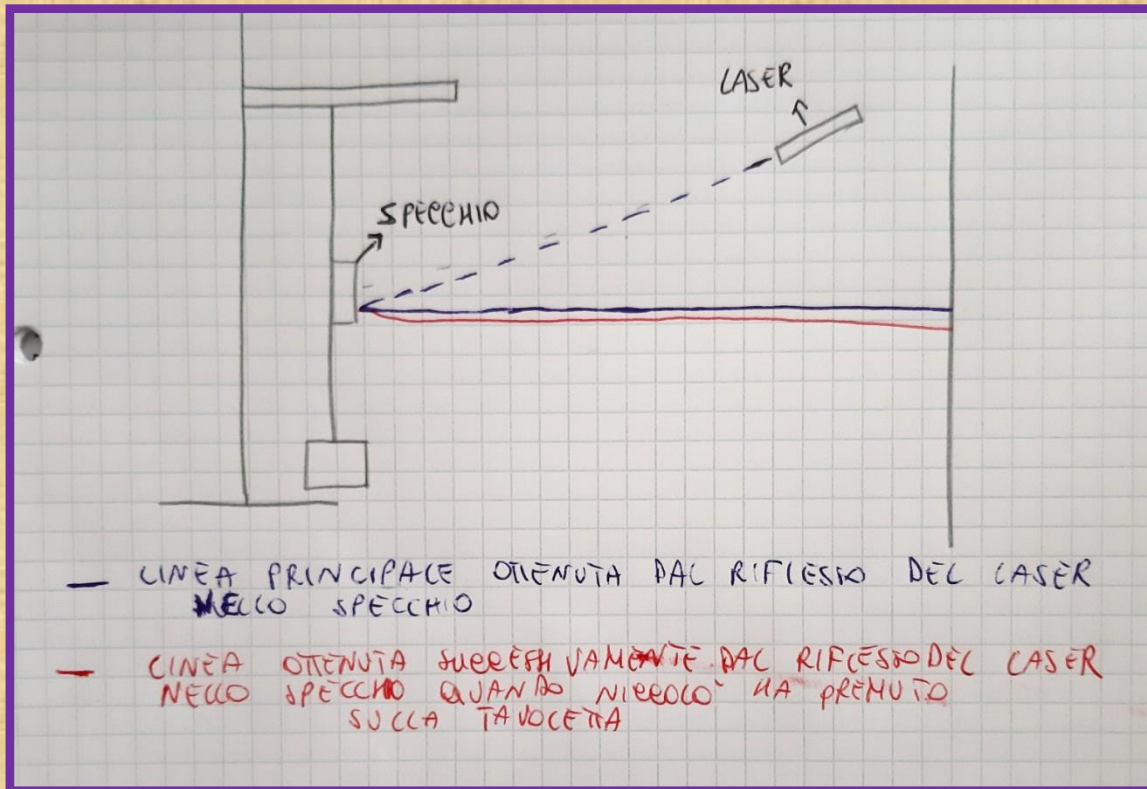 LASER
SPECCHIO
— LINEA PRINCIPALE OTTENUTA DAL RIFLESSO DEL LASER
NELLO SPECCHIO
— LINEA OTTENUTA SUCCESSIVAMENTE DAL RIFLESSO DEL LASER
NELLO SPECCHIO QUANDO NICCOLO' HA PREMUTO
SULLA TAVOLETTA